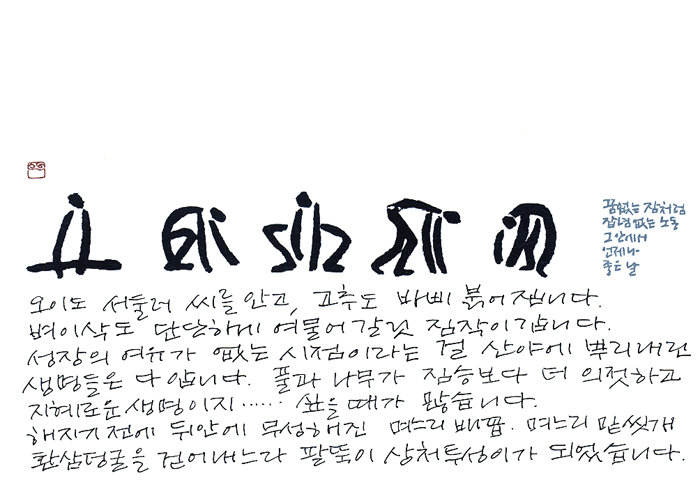 꿈없는 잠처럼
잡념없는 노동
그 안에서
언제나
좋은 날
오이도 서둘러 씨를 안고, 고추도 바삐 붉어집니다.
벼이삭도 단단하게 여물어갈것 짐작이 갑니다.
성장의 여유가 없는 시점이라는 걸 산야에 뿌리내린
생명들은 다 압니다. 풀과 나무가 짐승보다 더 의젓하고
지혜로운 생명이지······ 싶을 때가 많습니다.
해지기 전에 뒤안에 무성해진 며느리배꼽. 며느리 밑씻개
환삼덩굴을 걷어내느라 팔뚝이 상처투성이가 되었습니다.